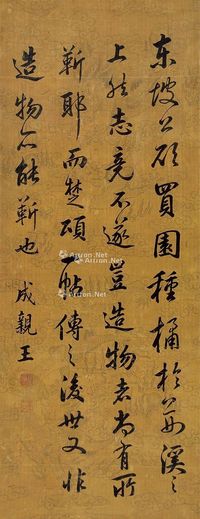 東坡公欲買園種橘於荊溪之
上然志竟不遂豈造物者尚有所
靳耶而楚頌一帖傳之後世又非
造物所能靳也 成親王
Artron.Net
Artron.Net